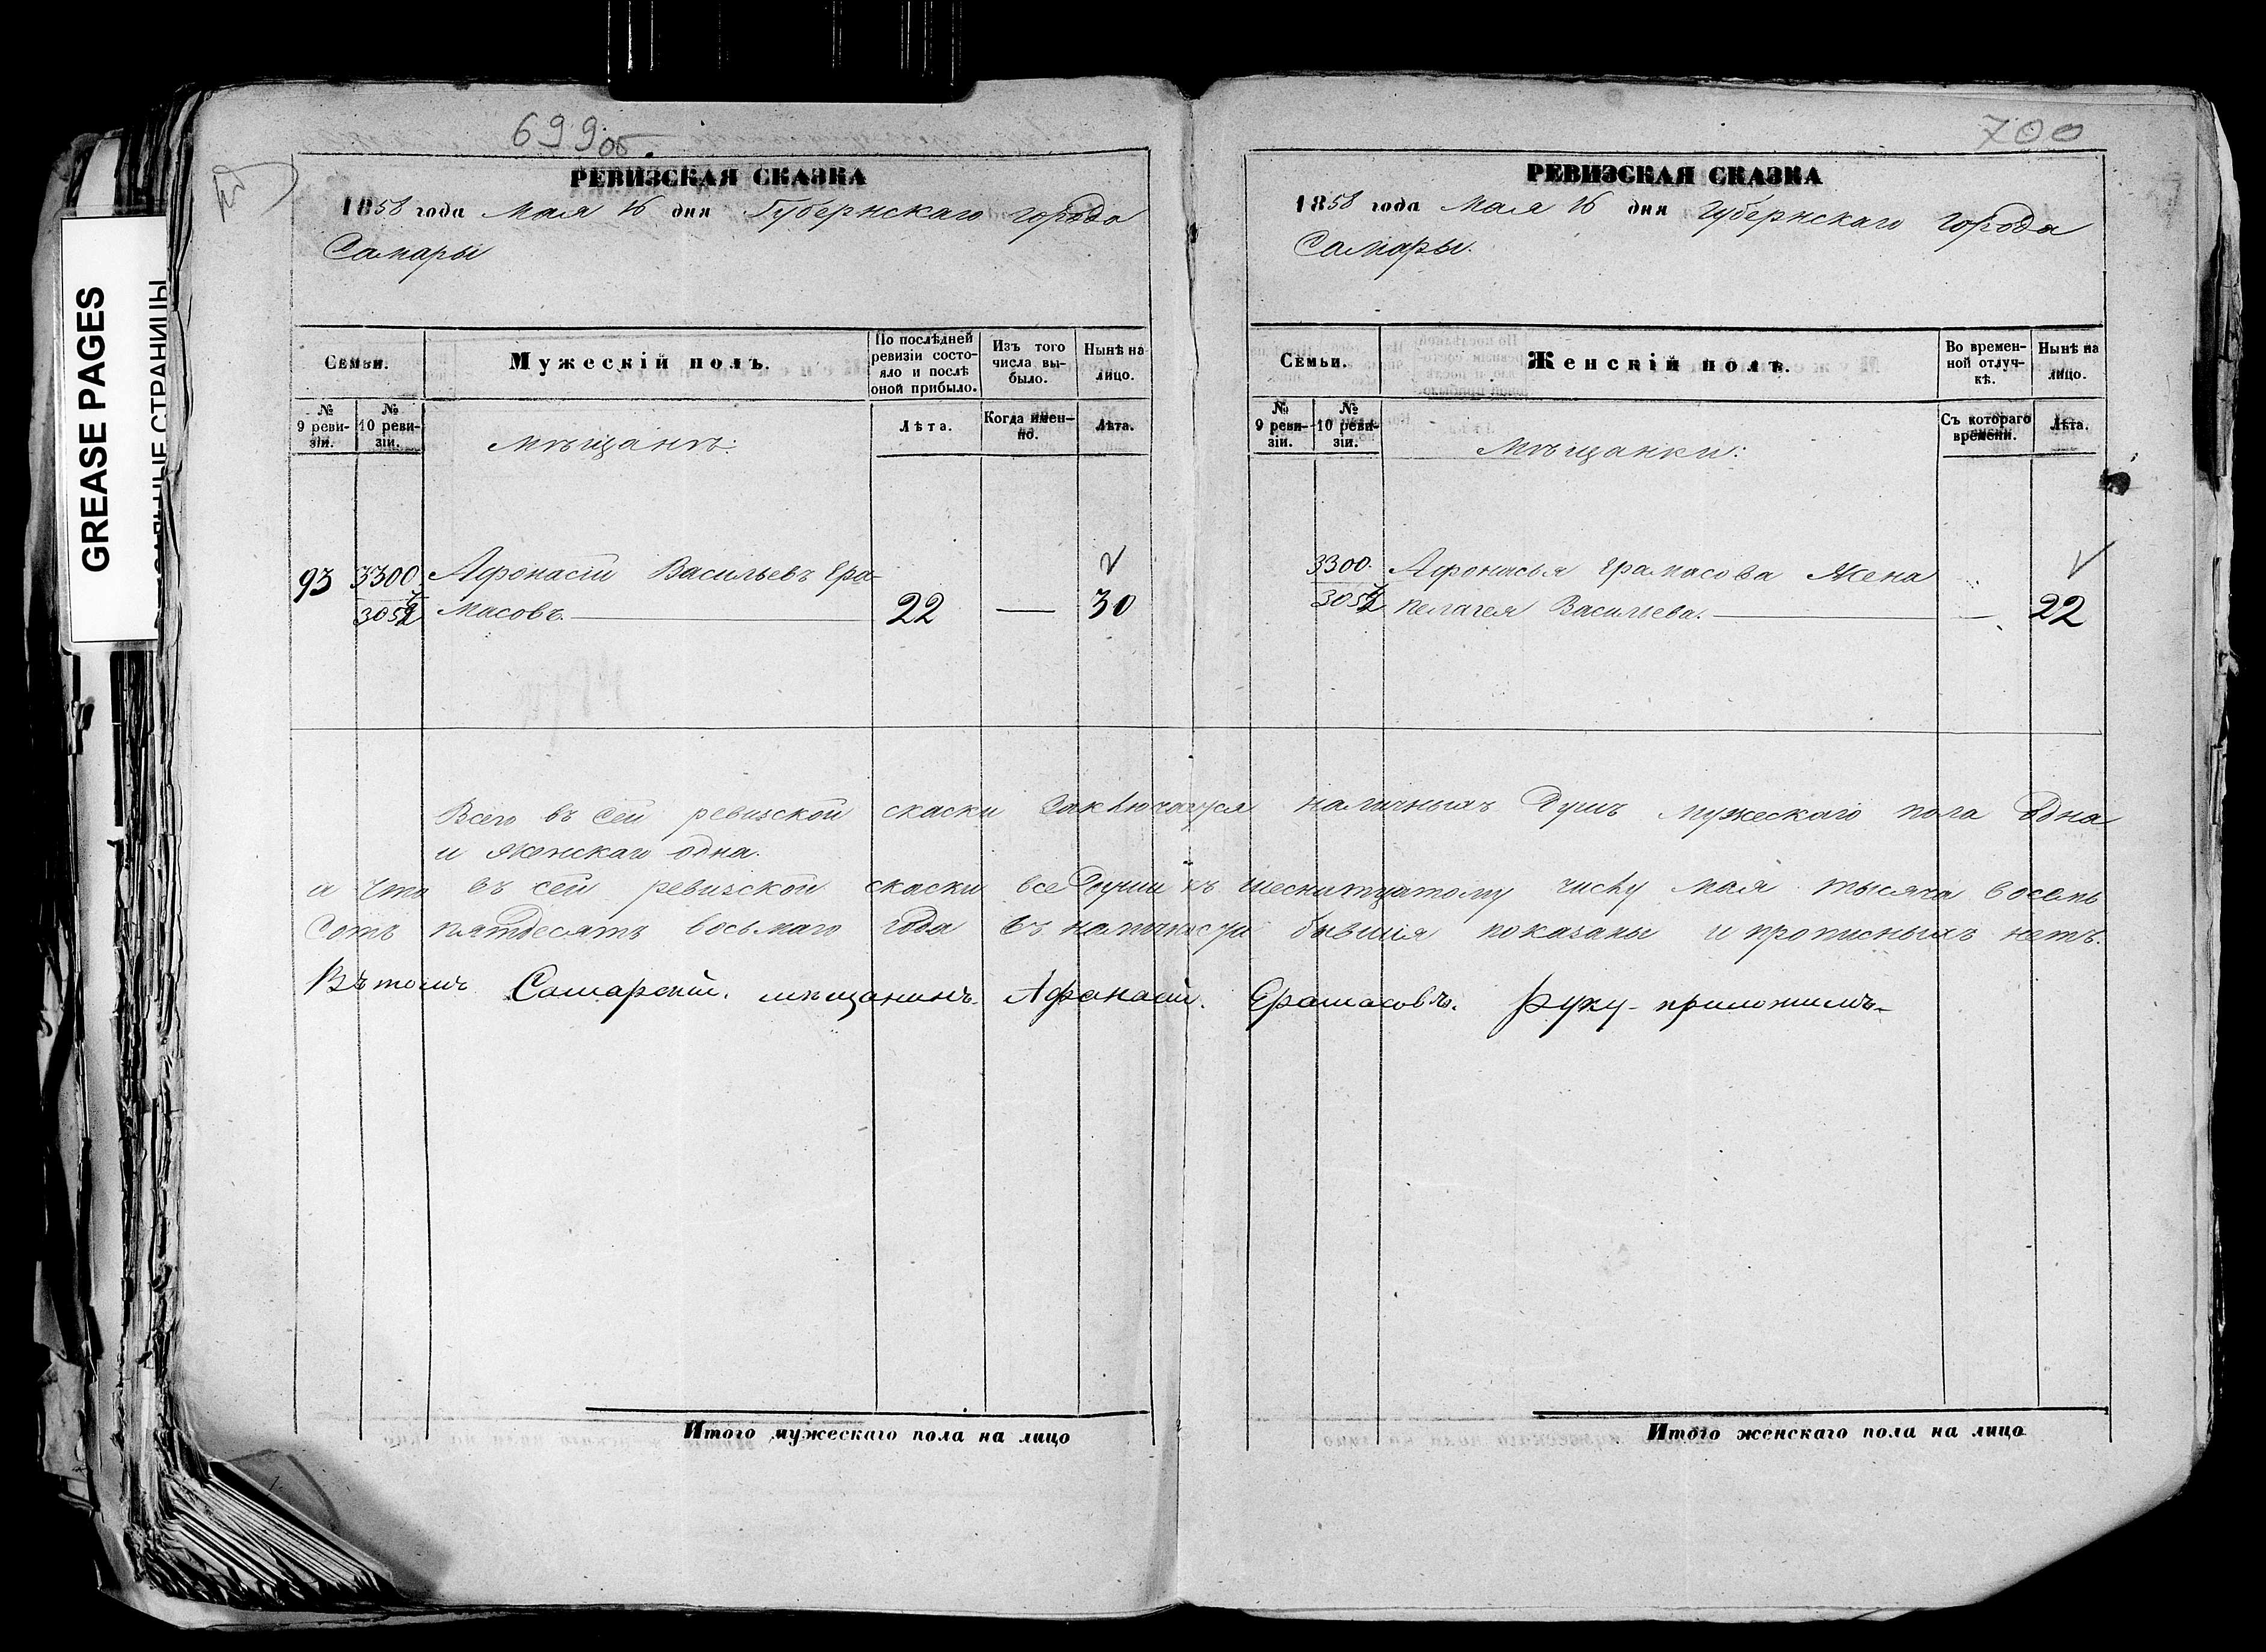 699об.
700
GREASE PAGES
РЕВИЗСКАЯ СКАЗКА
1858 года Мая 16 дня Губернскаго города
Самары
Семьи.
Мужескій полъ.
По послѣдней ревизіи состояло и послѣ оной прибыло.
Изъ того числа выбыло.
Нынѣ на лицо.
№ 9 ревизіи.
№ 10 ревизіи.
Мѣщанъ:
Лѣта.
Когда именно.
Лѣта.
93 3300 Афонасій Васильевъ Ера-
масовъ. 22 — 30
РЕВИЗСКАЯ СКАЗКА
1858 года Мая 16 дня Губернскаго города
Самары.
Семьи.
Женскій полъ.
Во временной отлучкѣ.
Нынѣ на лицо.
№ 9 ревизіи.
№ 10 ревизіи.
Мѣщанки:
Съ котораго времени.
Лѣта.
3300. Афонасья Ерамасова Жена
Пелагея Васильева. — 22
Всего въ сей ревизской скаски заключаутся наличныхъ душъ мужескаго пола одна
и Женскаго одна.
а что въ сей ревизской скаски все души къ шеснатцатому числу мая тысяча восемь
сотъ пятдесятъ восьмаго года въ бывшія показаны и прописныхъ нетъ.
Въ томъ Самарскій мѣщанинъ Афанасій Ерамасовъ. Руку приложилъ
Итого мужескаго пола на лицо
Итого женскаго пола на лицо